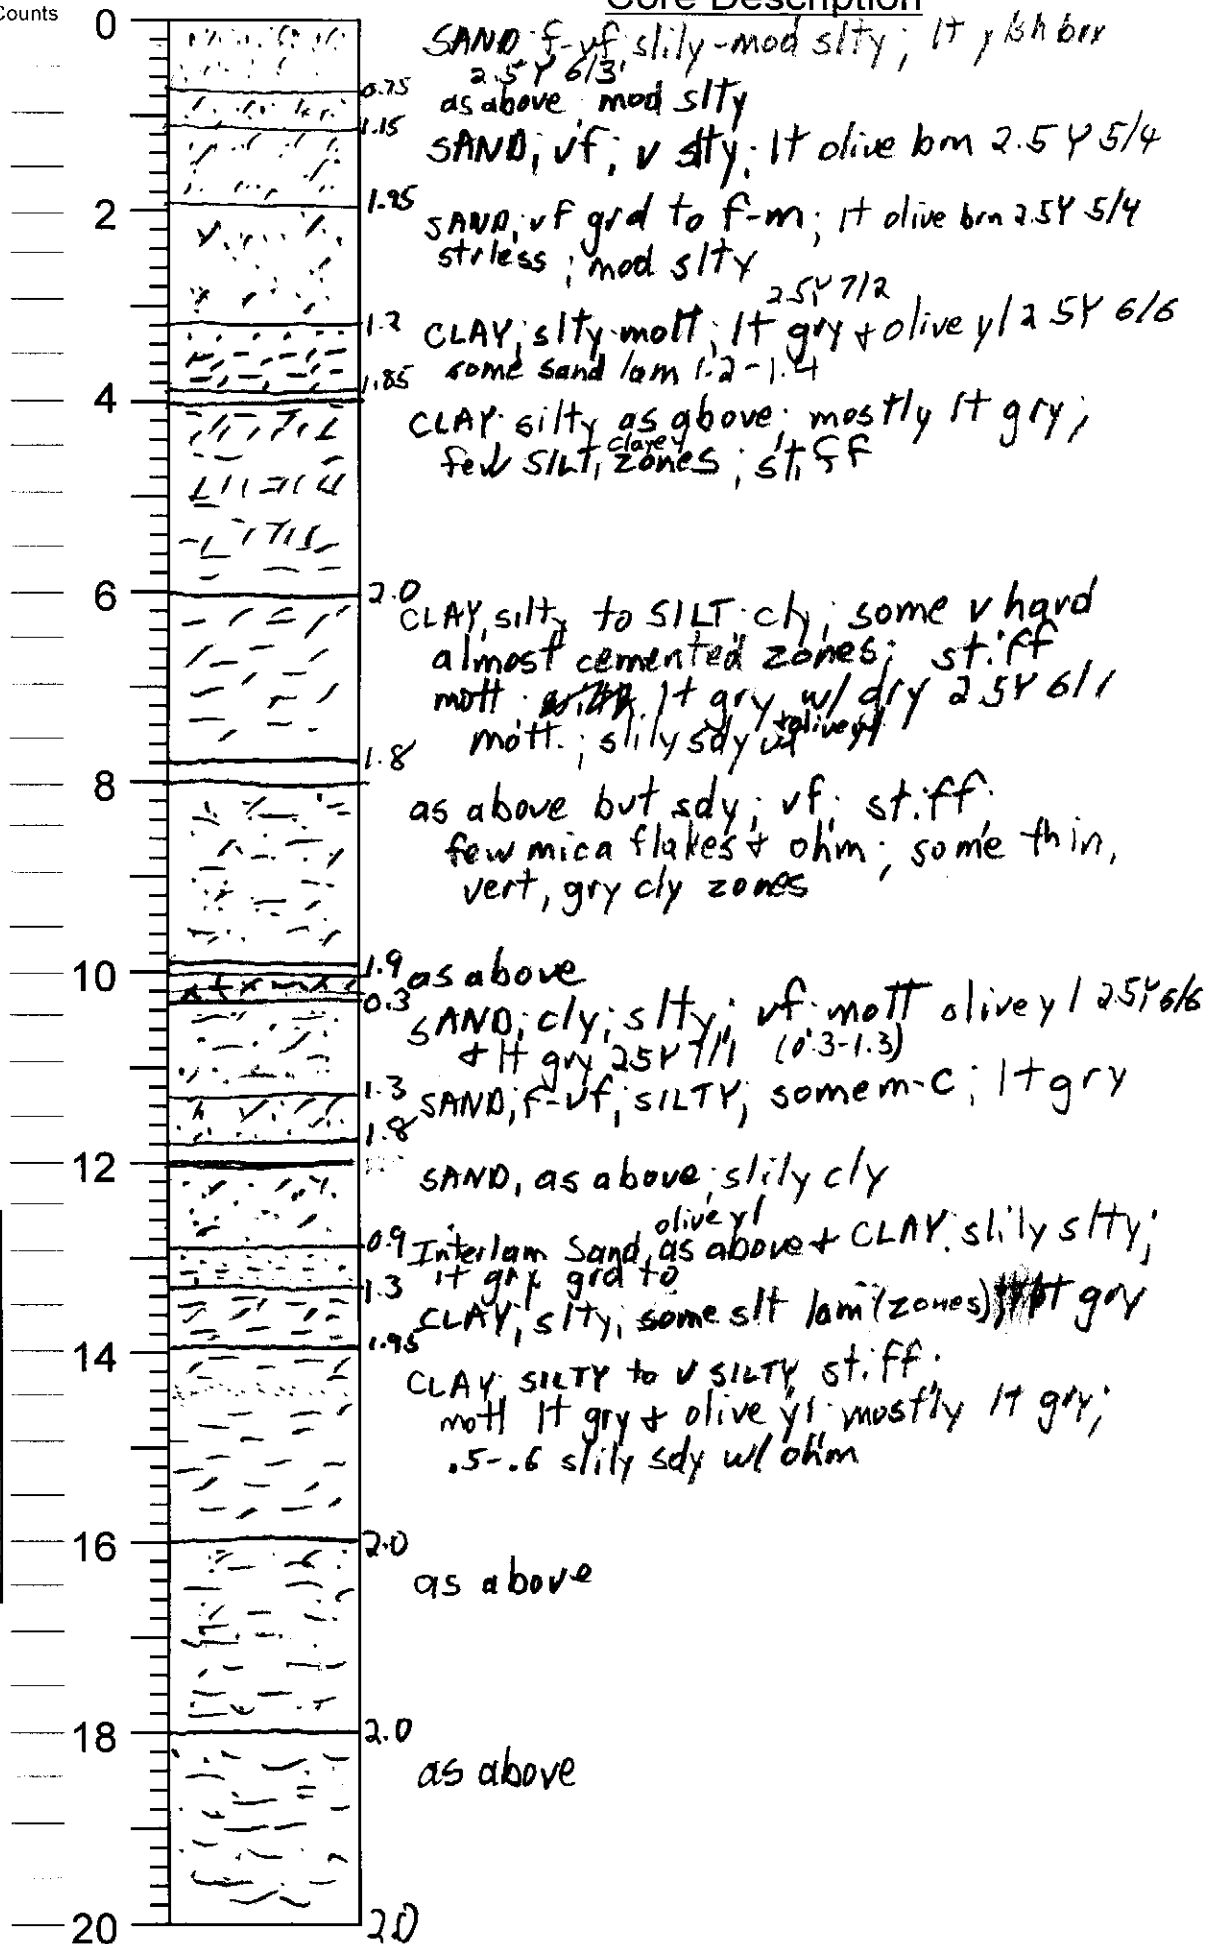 Counts
Core Description
0
SAND; f-vf; slily-mod slty; lt ylsh brn
2.5Y 6/3
0.75
as above; mod slty
1.15
SAND; vf; v slty; lt olive brn 2.5Y 5/4
1.95
2
SAND; vf grd to f-m; lt olive brn 2.5Y 5/4
strless; mod slty
2.5Y 7/2
1.2
CLAY; slty-mott; lt gry + olive yl 2.5Y 6/6
some sand lam 1.2-1.4
1.85
4
CLAY silty as above; mostly lt gry;
few SILT, clayey zones; stiff
6
2.0
CLAY, silty to SILT cly; some v hard
almost cemented zones; stiff
mott. lt gry w/ dry 2.5Y 6/1
mott.; slily sdy vf + olive yl
1.8
8
as above but sdy; vf; stiff;
few mica flakes + ohm; some thin,
vert, gry cly zones
1.9
10
as above
0.3
SAND; cly; slty; vf mott olive yl 2.5Y 6/6
+ lt gry 2.5Y 7/1 (0.3-1.3)
1.3
SAND, f-vf, SILTY; some m-c; lt gry
1.8
12
SAND, as above; slily cly
olive yl
0.9
Interlam Sand, as above + CLAY. slily slty;
lt gry grd to
1.3
CLAY, slty, some slt lam (zones) lt gry
1.95
14
CLAY, SILTY to v SILTY stiff;
mott lt gry + olive yl mostly lt gry;
.5-.6 slily sdy w/ ohm
16
2.0
as above
18
2.0
as above
20
2.0